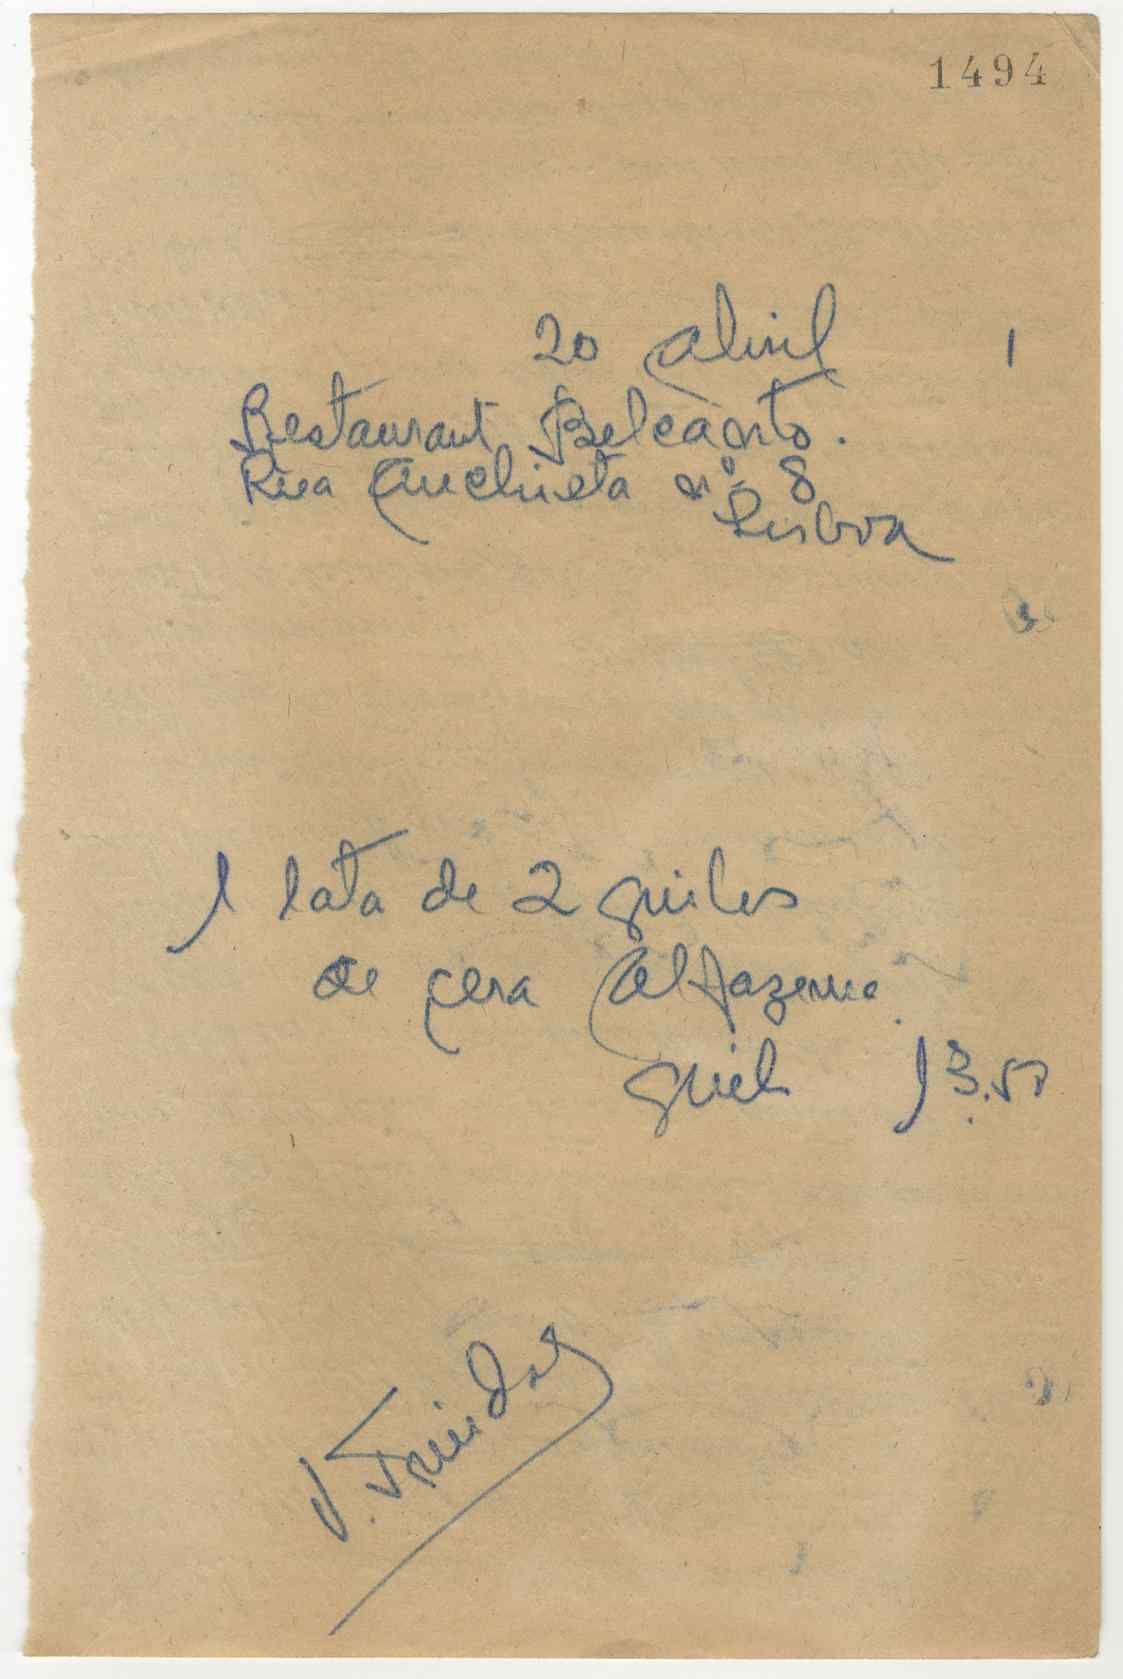 1494
20 Abril 1
Restaurant Belcanto.
Rua Anchieta nº 8
Lisboa
1 lata de 2 quilos
de cera Alfazema
quil 13.50